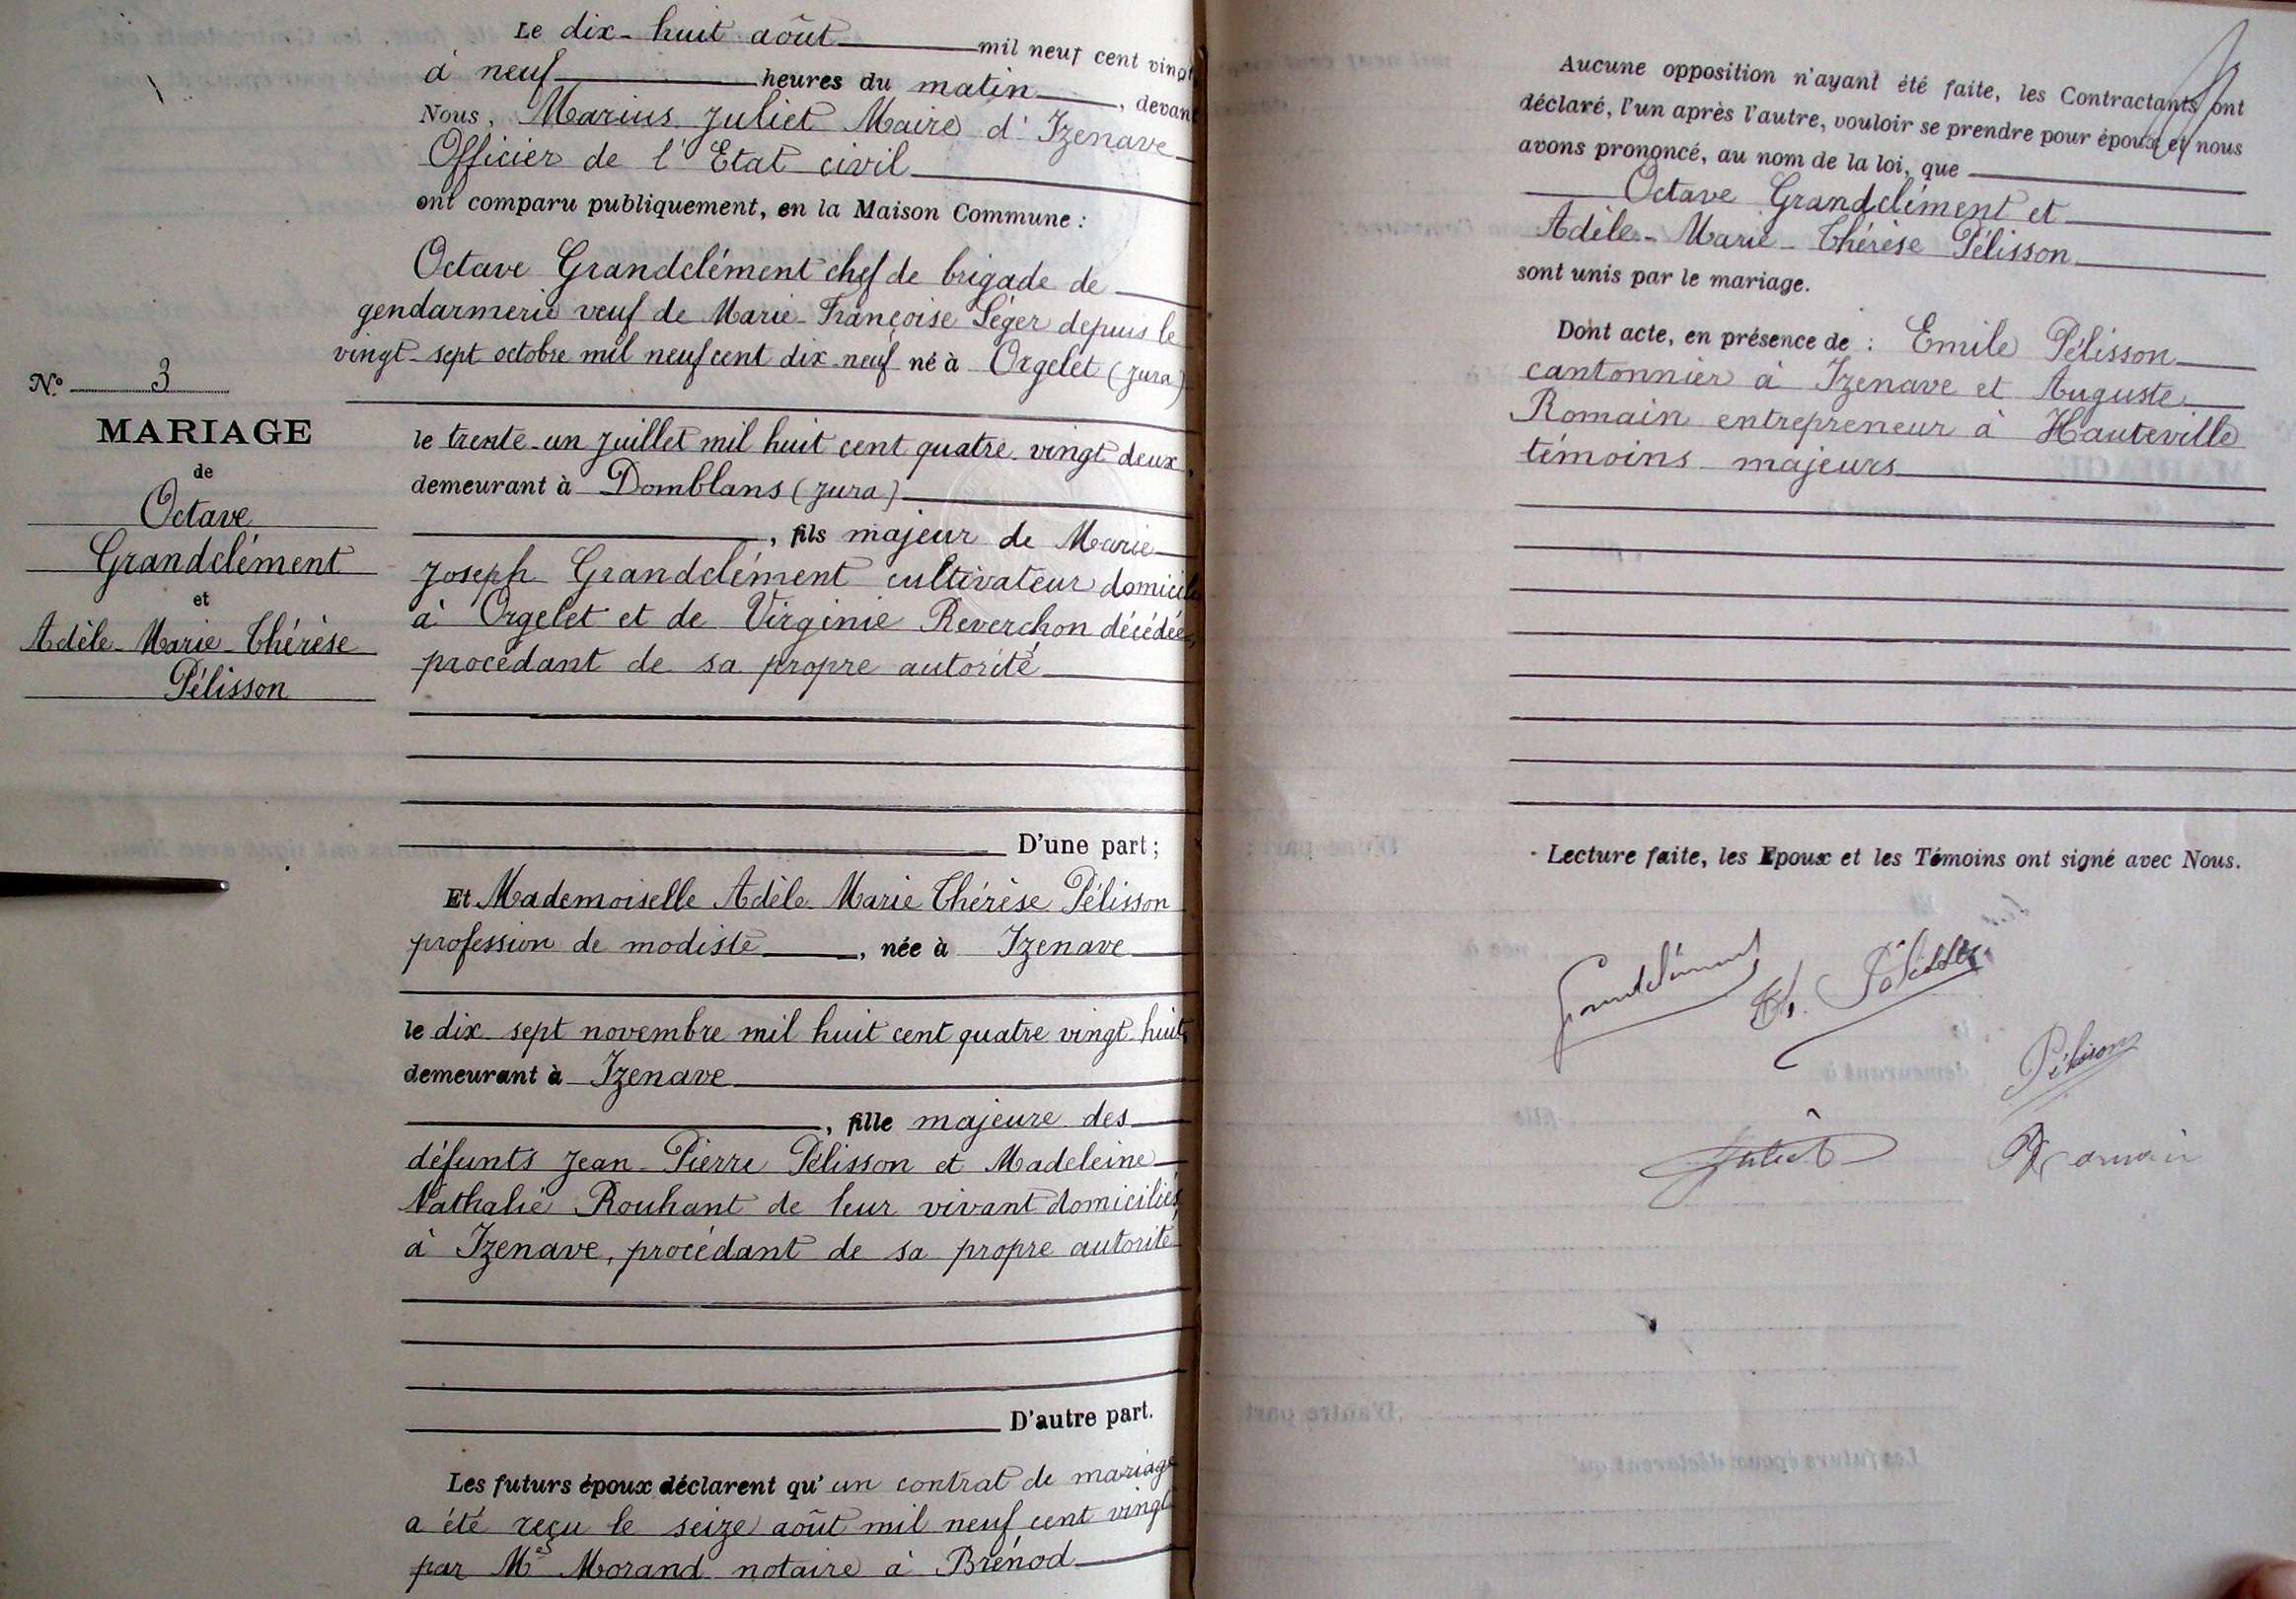 Le dix-huit août mil neuf cent vingt
à neuf heures du matin, devant
Nous, Marius Juliet Maire d'Izenave
Officier de l'Etat civil
ont comparu publiquement, en la Maison Commune :
Octave Grandclément chef de brigade de
gendarmerie veuf de Marie-Françoise Léger depuis le
vingt-sept octobre mil neuf cent dix-neuf né à Orgelet (Jura)
le trente-un juillet mil huit cent quatre-vingt deux,
demeurant à Domblans (Jura)
, fils majeur de Marie
Joseph Grandclément cultivateur domicilié
à Orgelet et de Virginie Reverchon décédée,
procédant de sa propre autorité
D'une part ;
Et Mademoiselle Adèle Marie Thérèse Pélisson
profession de modiste, née à Izenave
le dix-sept novembre mil huit cent quatre vingt-huit
demeurant à Izenave
, fille majeure des
défunts Jean-Pierre Pélisson et Madeleine
Nathalie Rouhant de leur vivant domiciliés
à Izenave, procédant de sa propre autorité
D'autre part.
Les futurs époux déclarent qu'un contrat de mariage
a été reçu le seize août mil neuf cent vingt
par Me Morand notaire à Brénod
No 3
MARIAGE
de
Octave
Grandclément
et
Adèle-Marie-Thérèse
Pélisson
Aucune opposition n'ayant été faite, les Contractants ont
déclaré, l'un après l'autre, vouloir se prendre pour époux et nous
avons prononcé, au nom de la loi, que
Octave Grandclément et
Adèle-Marie-Thérèse Pélisson
sont unis par le mariage.
Dont acte, en présence de : Emile Pélisson
cantonnier à Izenave et Auguste
Romain entrepreneur à Hauteville
témoins majeurs
Lecture faite, les Epoux et les Témoins ont signé avec Nous.
Grandclément
Pélisson
Pélisson
Juliet
Romain